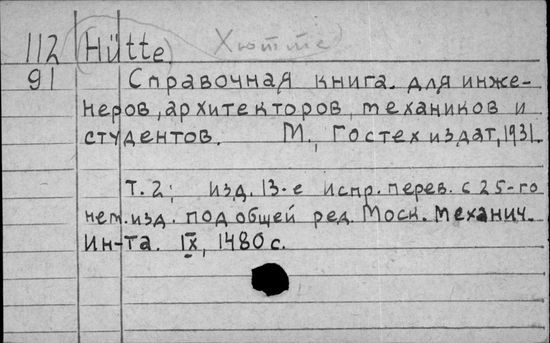 112 Hütte Хютте
91 Справочная книга для инже-
неров, архитекторов, механиков и
студентов. М., Гостехиздат, 1931.
Т. 2; изд. 13-е испр. перев. с 25-го
нем. изд. под общей ред. Моск. Механич.
Ин-та. IX, 1480 с.